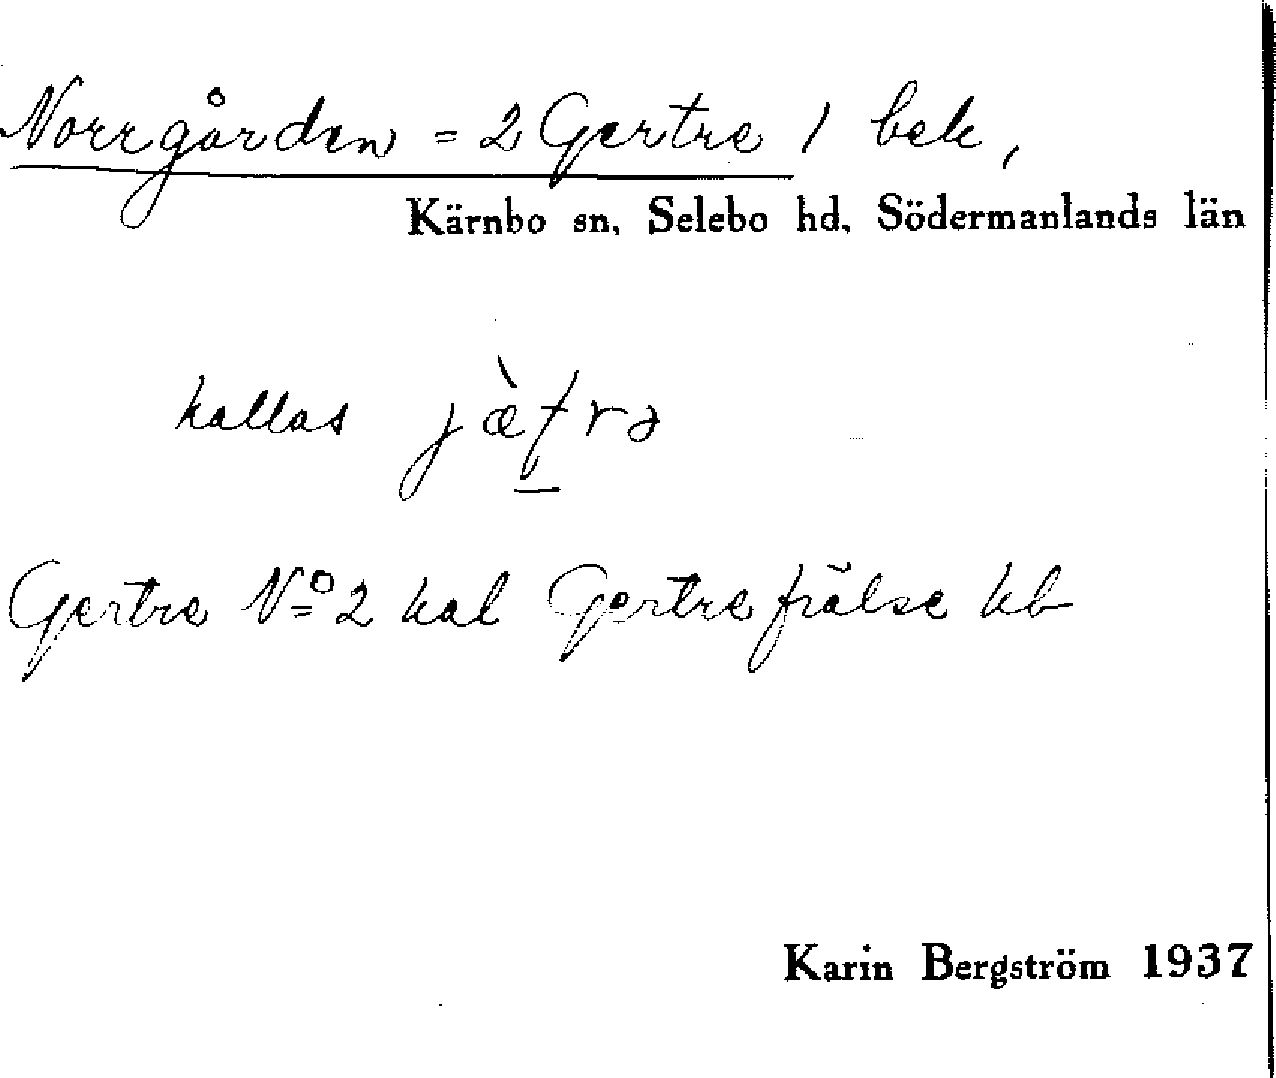 Norrgården = 2 Gertre / bek,
Kärnbo sn, Selebo hd, Södermanlands län
kallas
Gertre No 2 kal Gertre frälse kb
Karin Bergström 1937